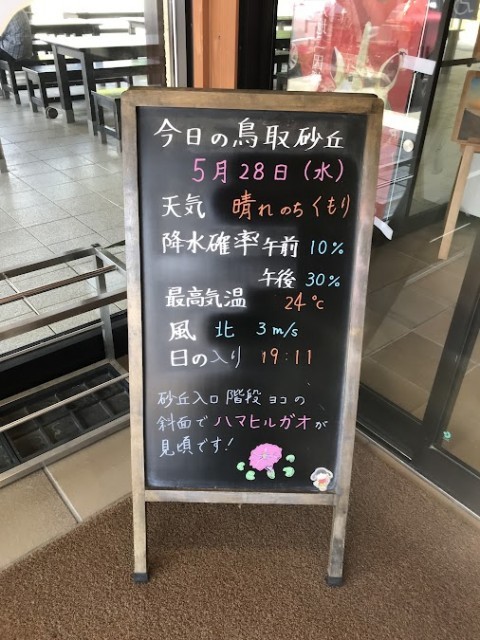 今日の鳥取砂丘
5月28日(水)
天気 晴れのちくもり
降水確率 午前 10%
午後 30%
最高気温 24℃
風 北 3m/s
日の入り 19:11
砂丘入口階段ヨコの
斜面でハマヒルガオが
見頃です!